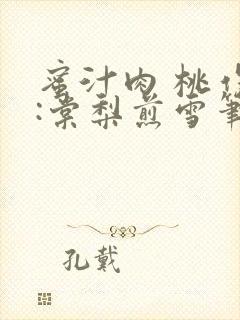 蜜汁肉桃作
:棠梨煎雪筆
孔戴